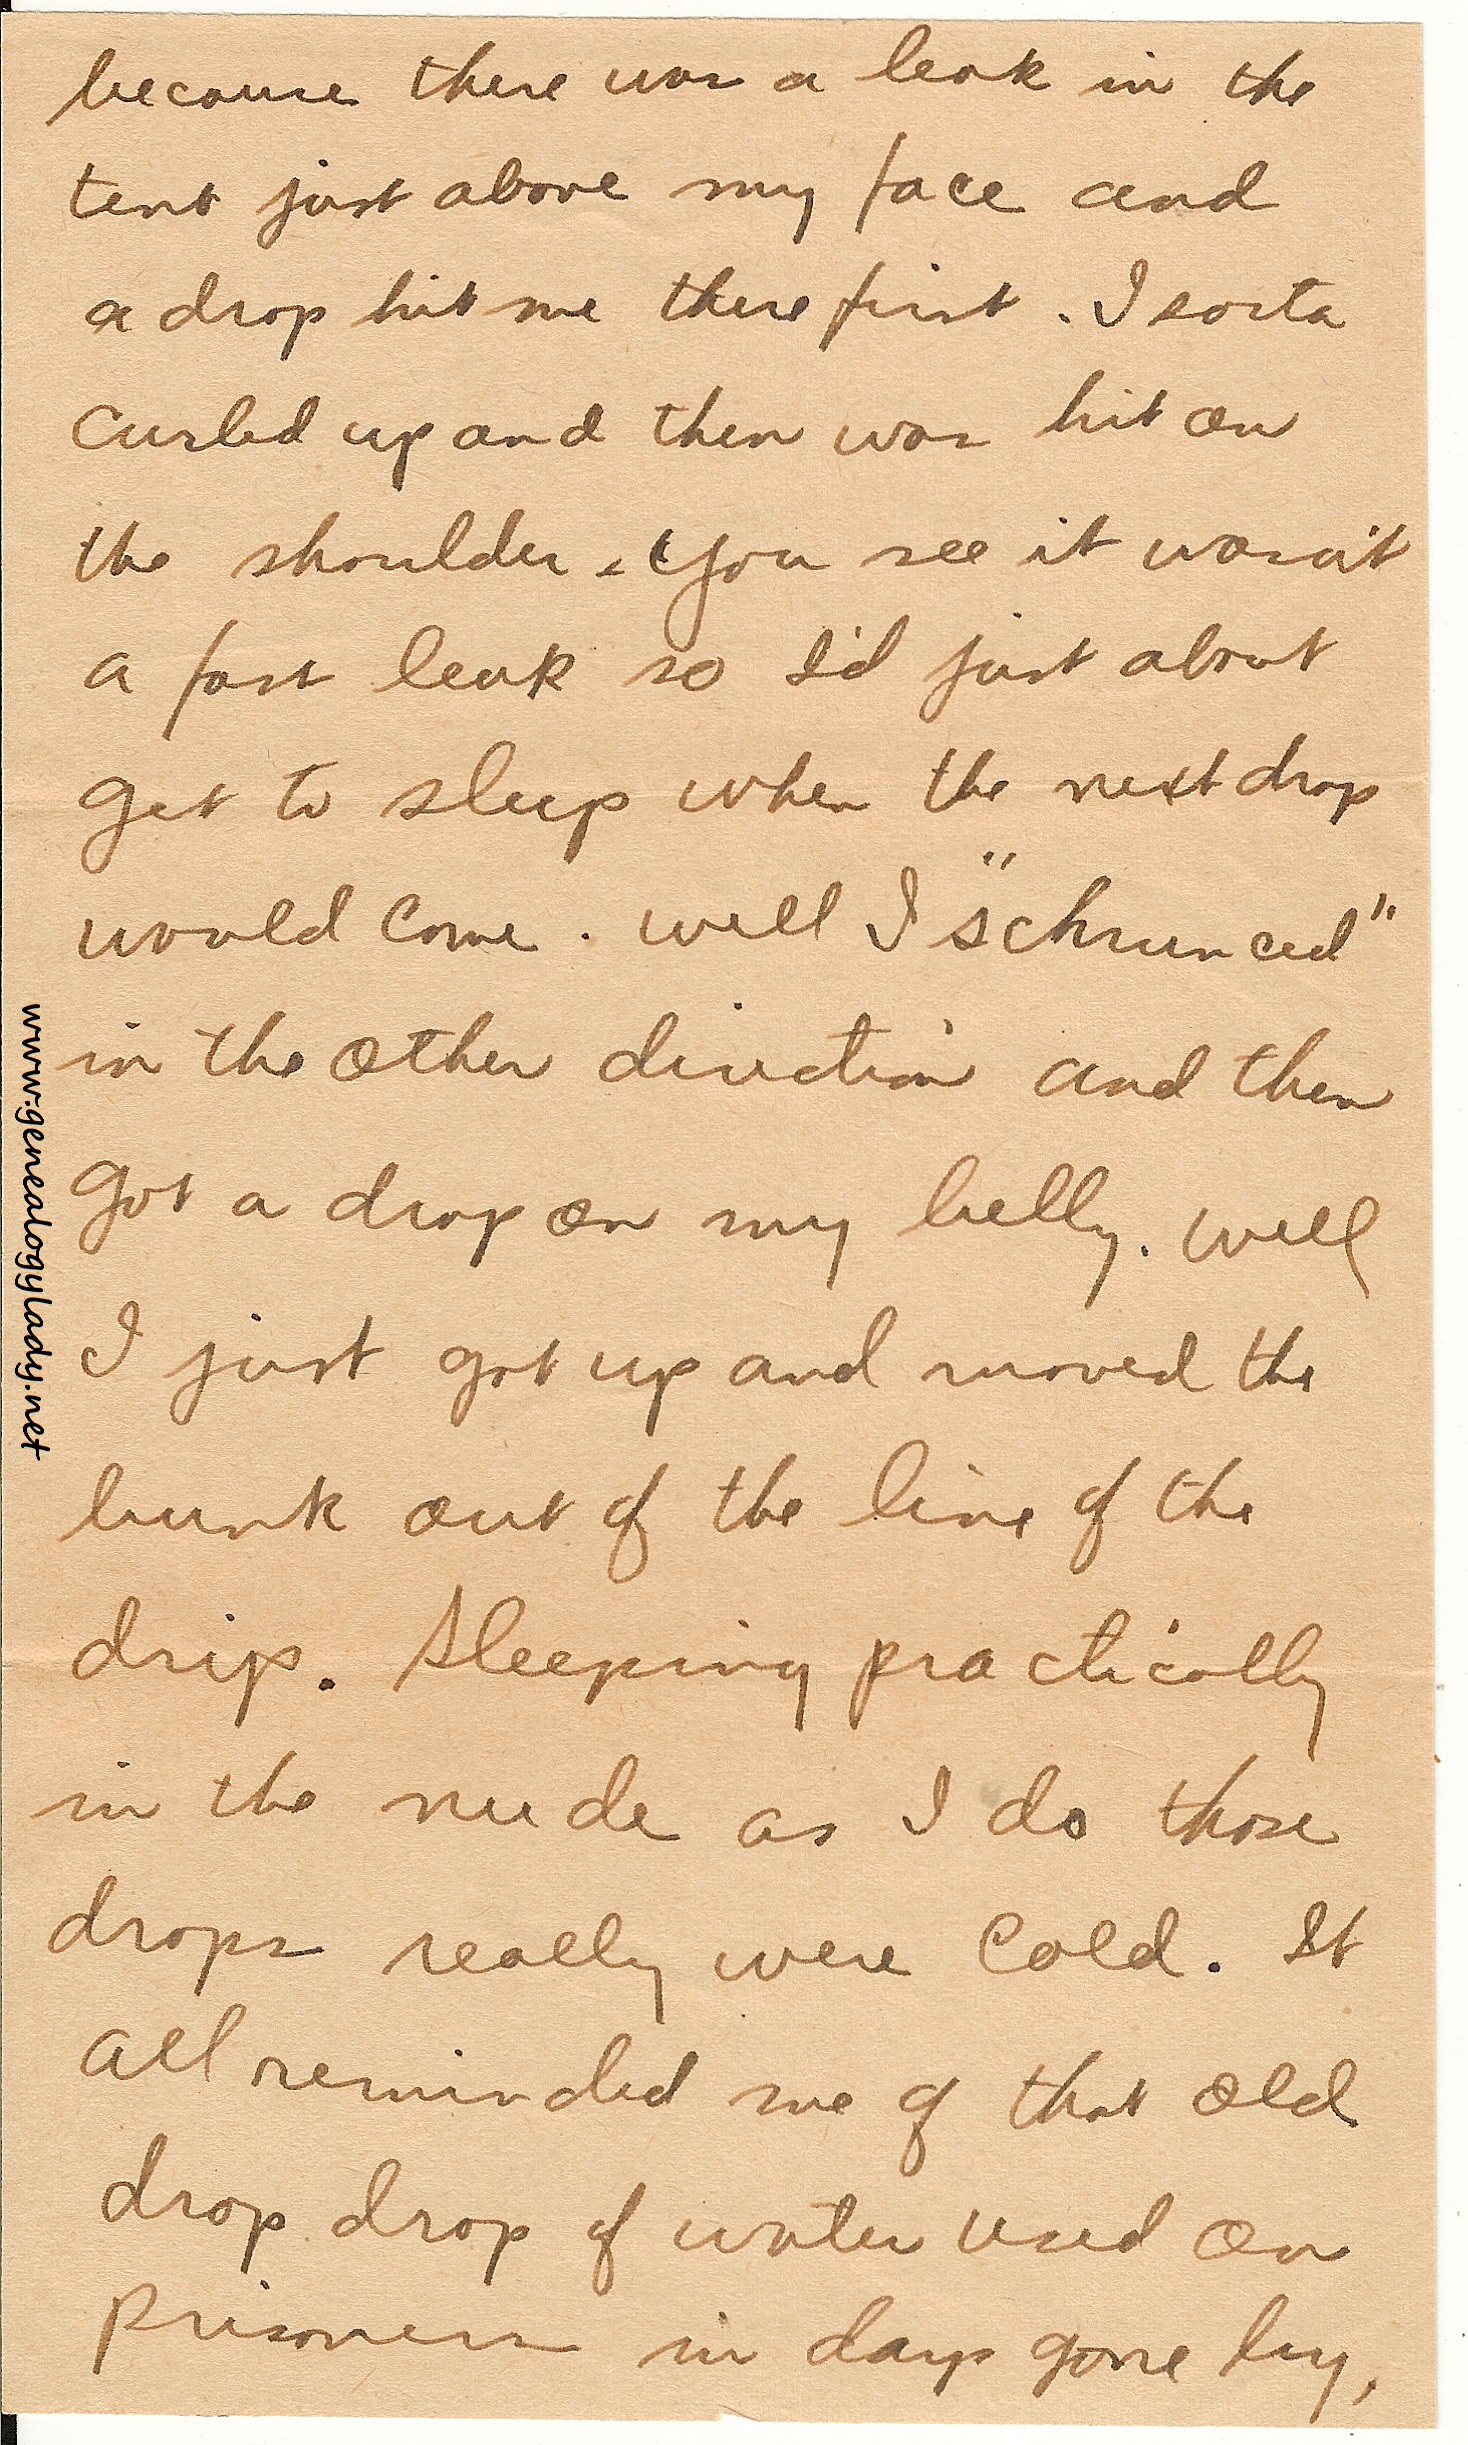 because there was a leak in the
tent just above my face and
a drop hit me there first. I sorta
curled up and then was hit on
the shoulder. You see it wasn't
a fast leak so I'd just about
get to sleep when the next drop
would come. Well I "schrunced"
in the other direction and then
got a drop on my belly. Well
I just got up and moved the
bunk out of the line of the
drip. Sleeping practically
in the nude as I do those
drops really were cold. It
all reminded me of that old
drop drop of water used on
prisoners in days gone by,
www.genealogylady.net